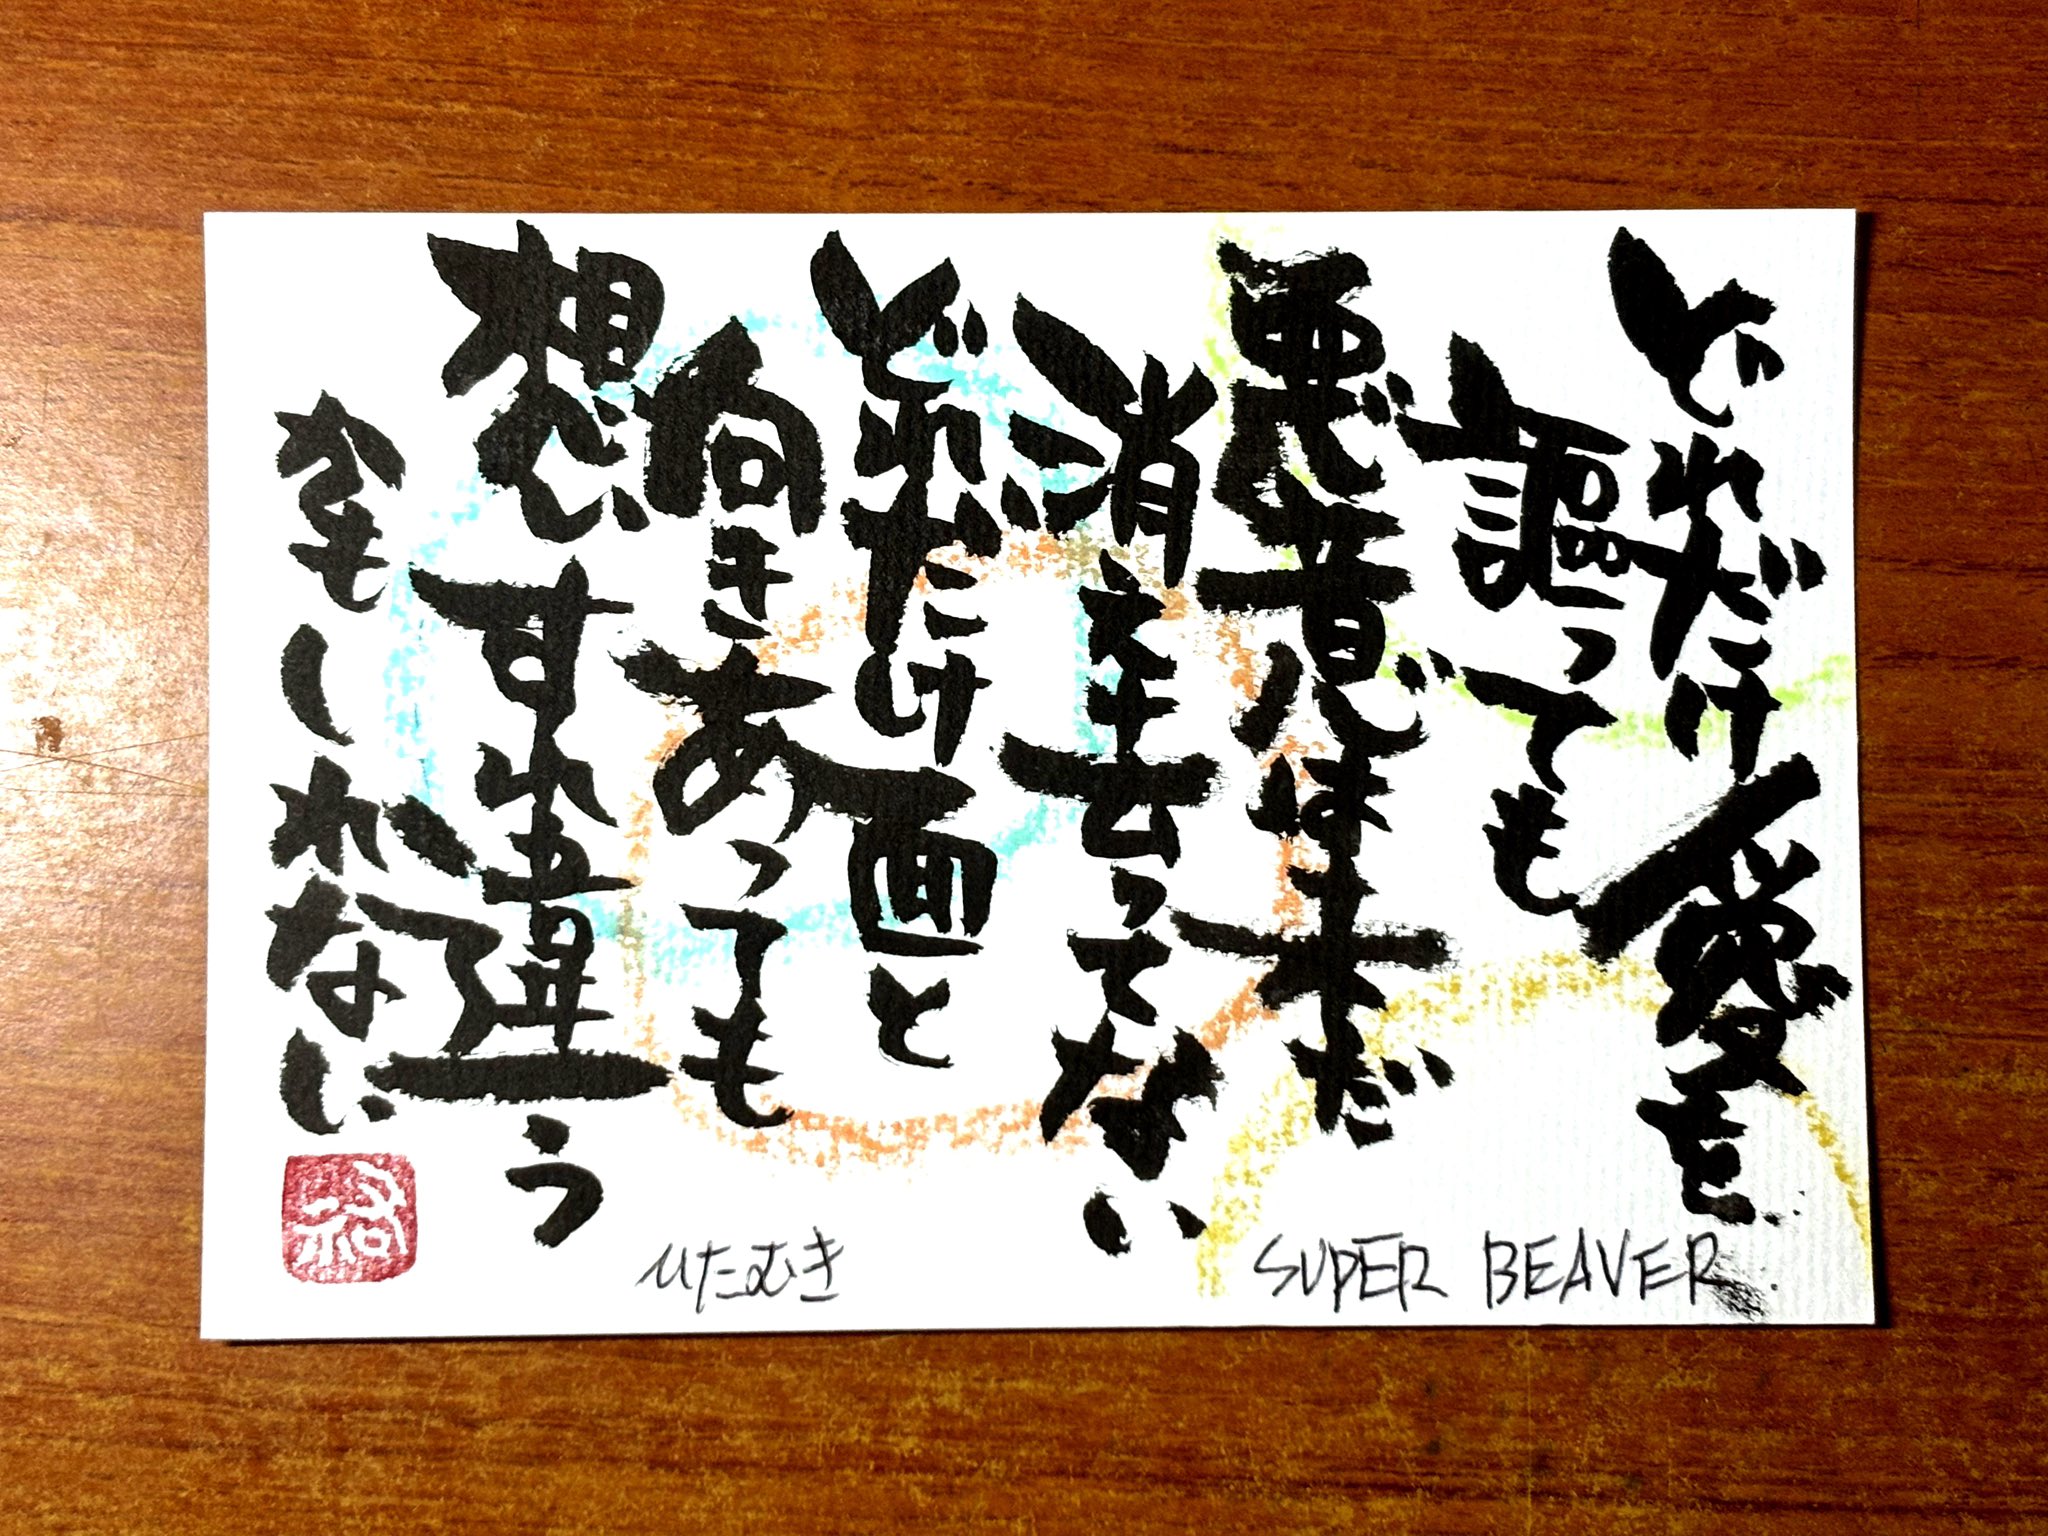 どれだけ愛を
謳っても
悪意は未だ
消え去ってない
どれだけ面と
向きあっても
想いすれ違う
かもしれない
SUPER BEAVER
ひたむき